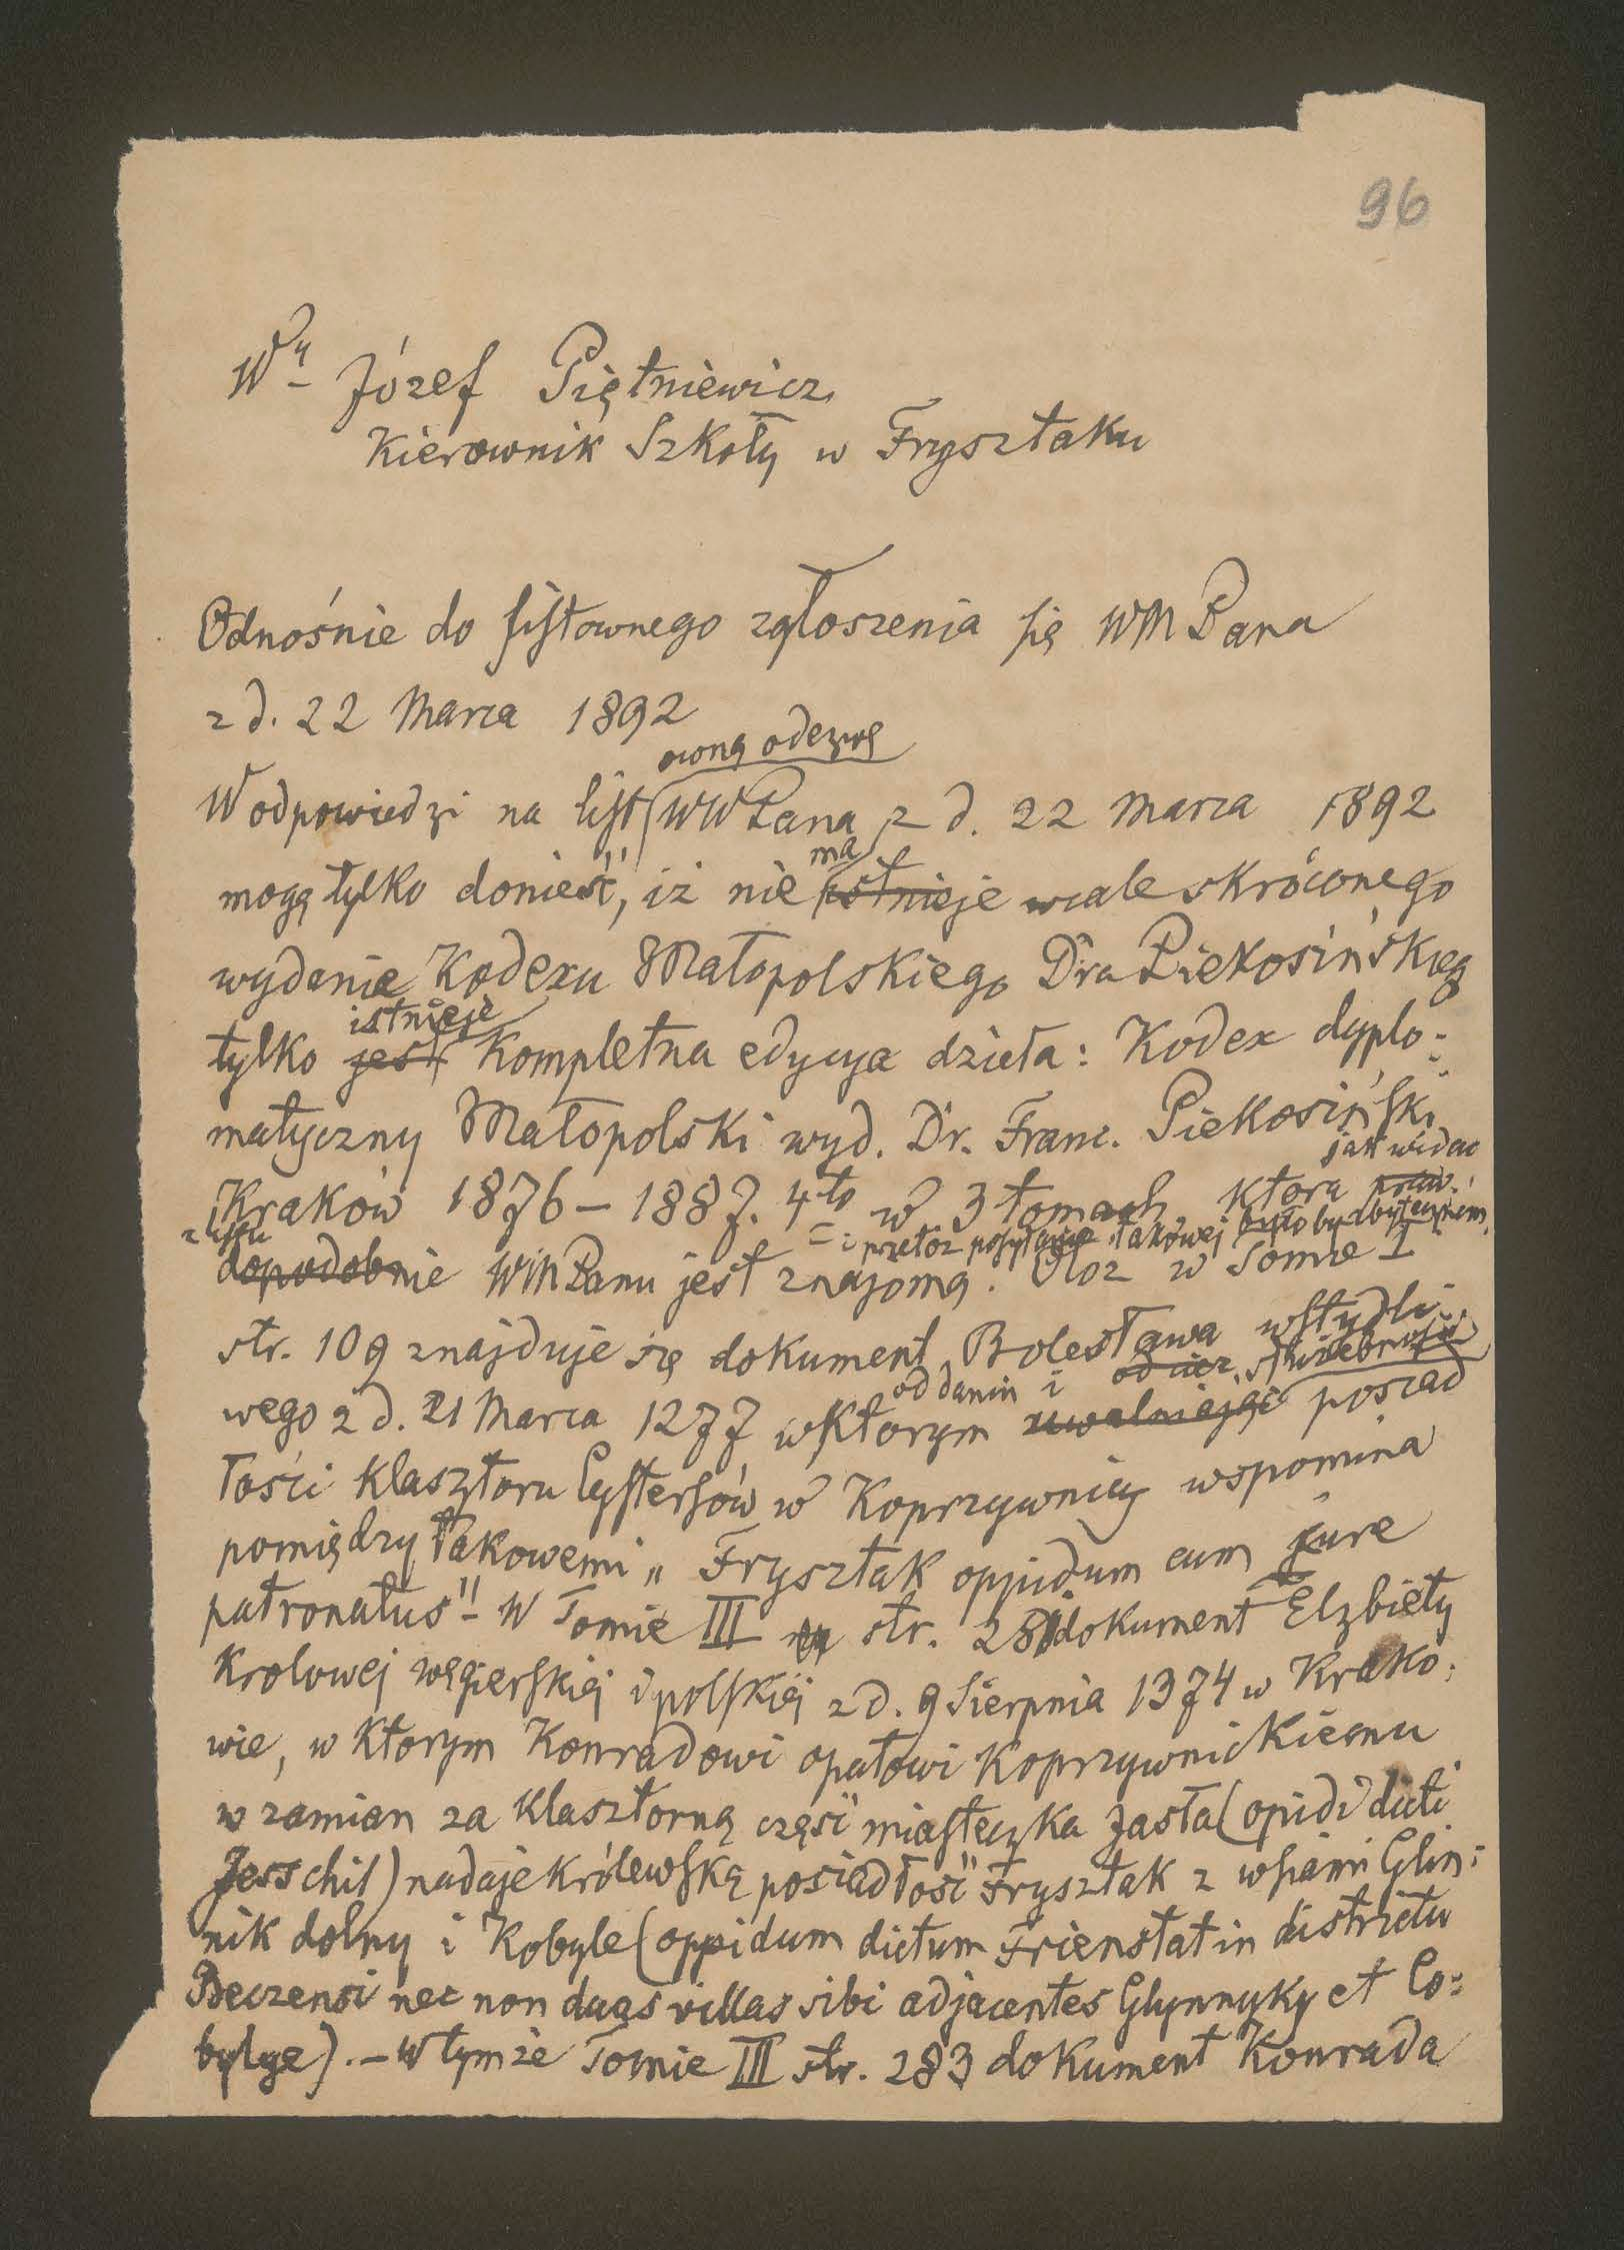 96
Wny Józef Piętniewicz
Kierownik Szkoły w Frysztaku
Odnośnie do listownego zgłoszenia się WM Pana
z d. 22 Marca 1892
ową odezwę
W odpowiedzi na list WW Pana z d. 22 Marca 1892
ma
mogę tylko donieść, iż nie istnieje wcale skróconego
wydanie Kodexu Małopolskiego Dra Piekosińskieg
istnieje
tylko jest kompletna edycya dzieła: Kodex dyplo-
matyczny Małopolski wyd. Dr. Franc. Piekosiński
jak widać
Kraków 1876–1887. 4to w 3 tomach, która
z listu
przeto posyłanie takowej byłoby zbytecznem
dopodobnie WM Panu jest znajomą. Otoż w Tomie I
str. 109 znajduje się dokument Bolesława wstydli-
od danin i od
wego z d. 21 Marca 1277, w którym uwalniając posiad
łości klasztoru Cystersów w Koprzywnicy wspomina
pomiędzy takowemi „Frysztak oppidum cum jure
patronatus" – W Tomie III str. 281 dokument Elżbiety
Krolowej węgierskiej i polskiej z d. 9 Sierpnia 1374 w Krako-
wie, w ktorym Konradowi opatowi Koprzywnickiemu
w zamian za klasztorną część miasteczka Jasła (opidi dicti
Jesschil) nadaje królewską posiadłość Frysztak z wsiami Glin-
nik dolny i Kobyle (oppidum dictum Frienstat in districtu
Beczensi nec non duas villas sibi adjacentes Glynnyky et Co-
bylye). – W tymże Tomie III str. 283 dokument Konrada